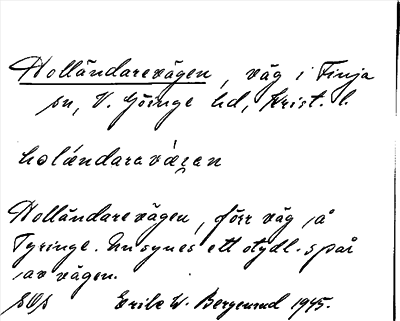 Holländarevägen, väg i Finja
sn, V. Göinge hd, Krist. l.
holándaravägen
Holländarevägen, förr väg å
Tyringe. Nu synes ett otydl. spår
av vägen.
Erik W. Bergemud 1945.